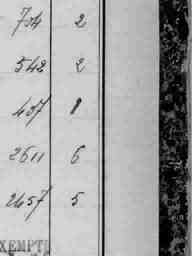 704 2
542 2
407 8
2611 6
2657 5
XEMPTI